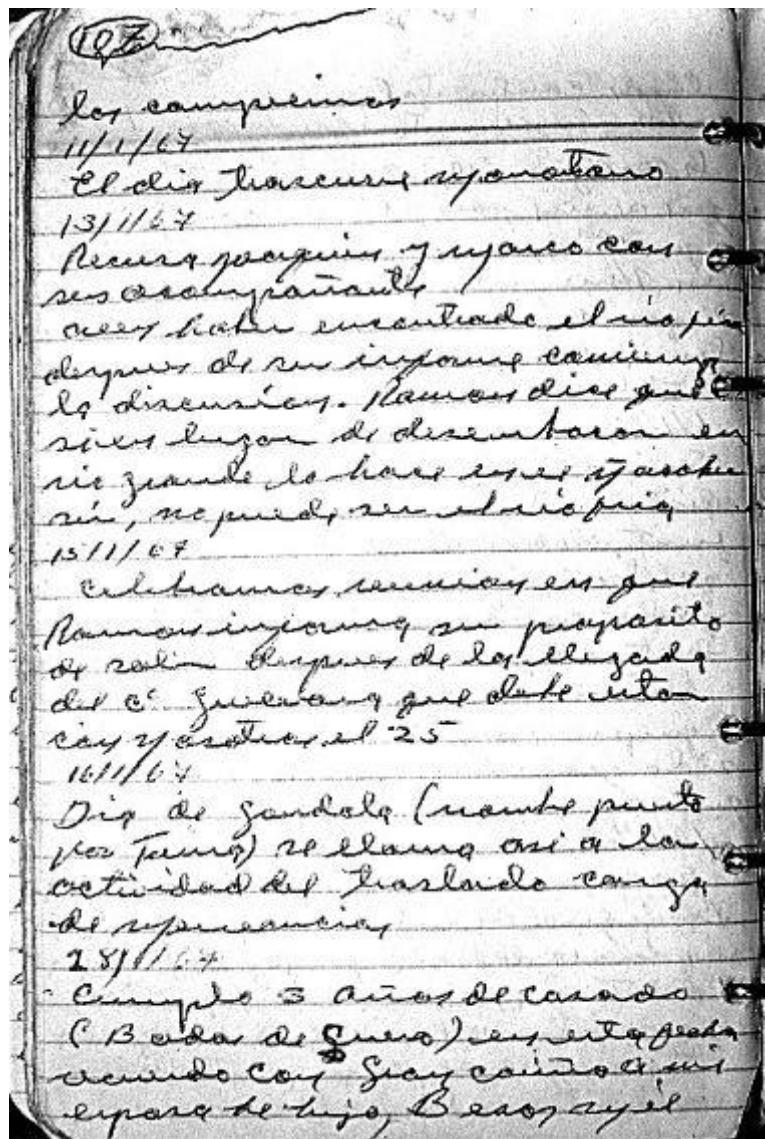 107
los campesinos
11/1/67
El dia trascurre monotono
13/1/67
Recursa Joaquin y marco con
sus acompañante
creen haber encontrado el rio
despues de su informe comienza
la discusion. Ramon dice que
si en lugar de desembocar en
rio grande lo hace en el
no puede ser el rio
15/1/67
celebramos reunion en que
Ramon informa su proposito
de salir despues de la llegada
del c. Guevara que debe estar
con nosotros el 25
16/1/67
Dia de gondola (nombre puesto
por Tuma) se llama asi a la
actividad del traslado carga
de
28/1/67
Cumplo 3 años de casado
(Bodas de Cuero) en esta fecha
recuerdo con gran cariño a mi
esposa he hijo, Besos mil